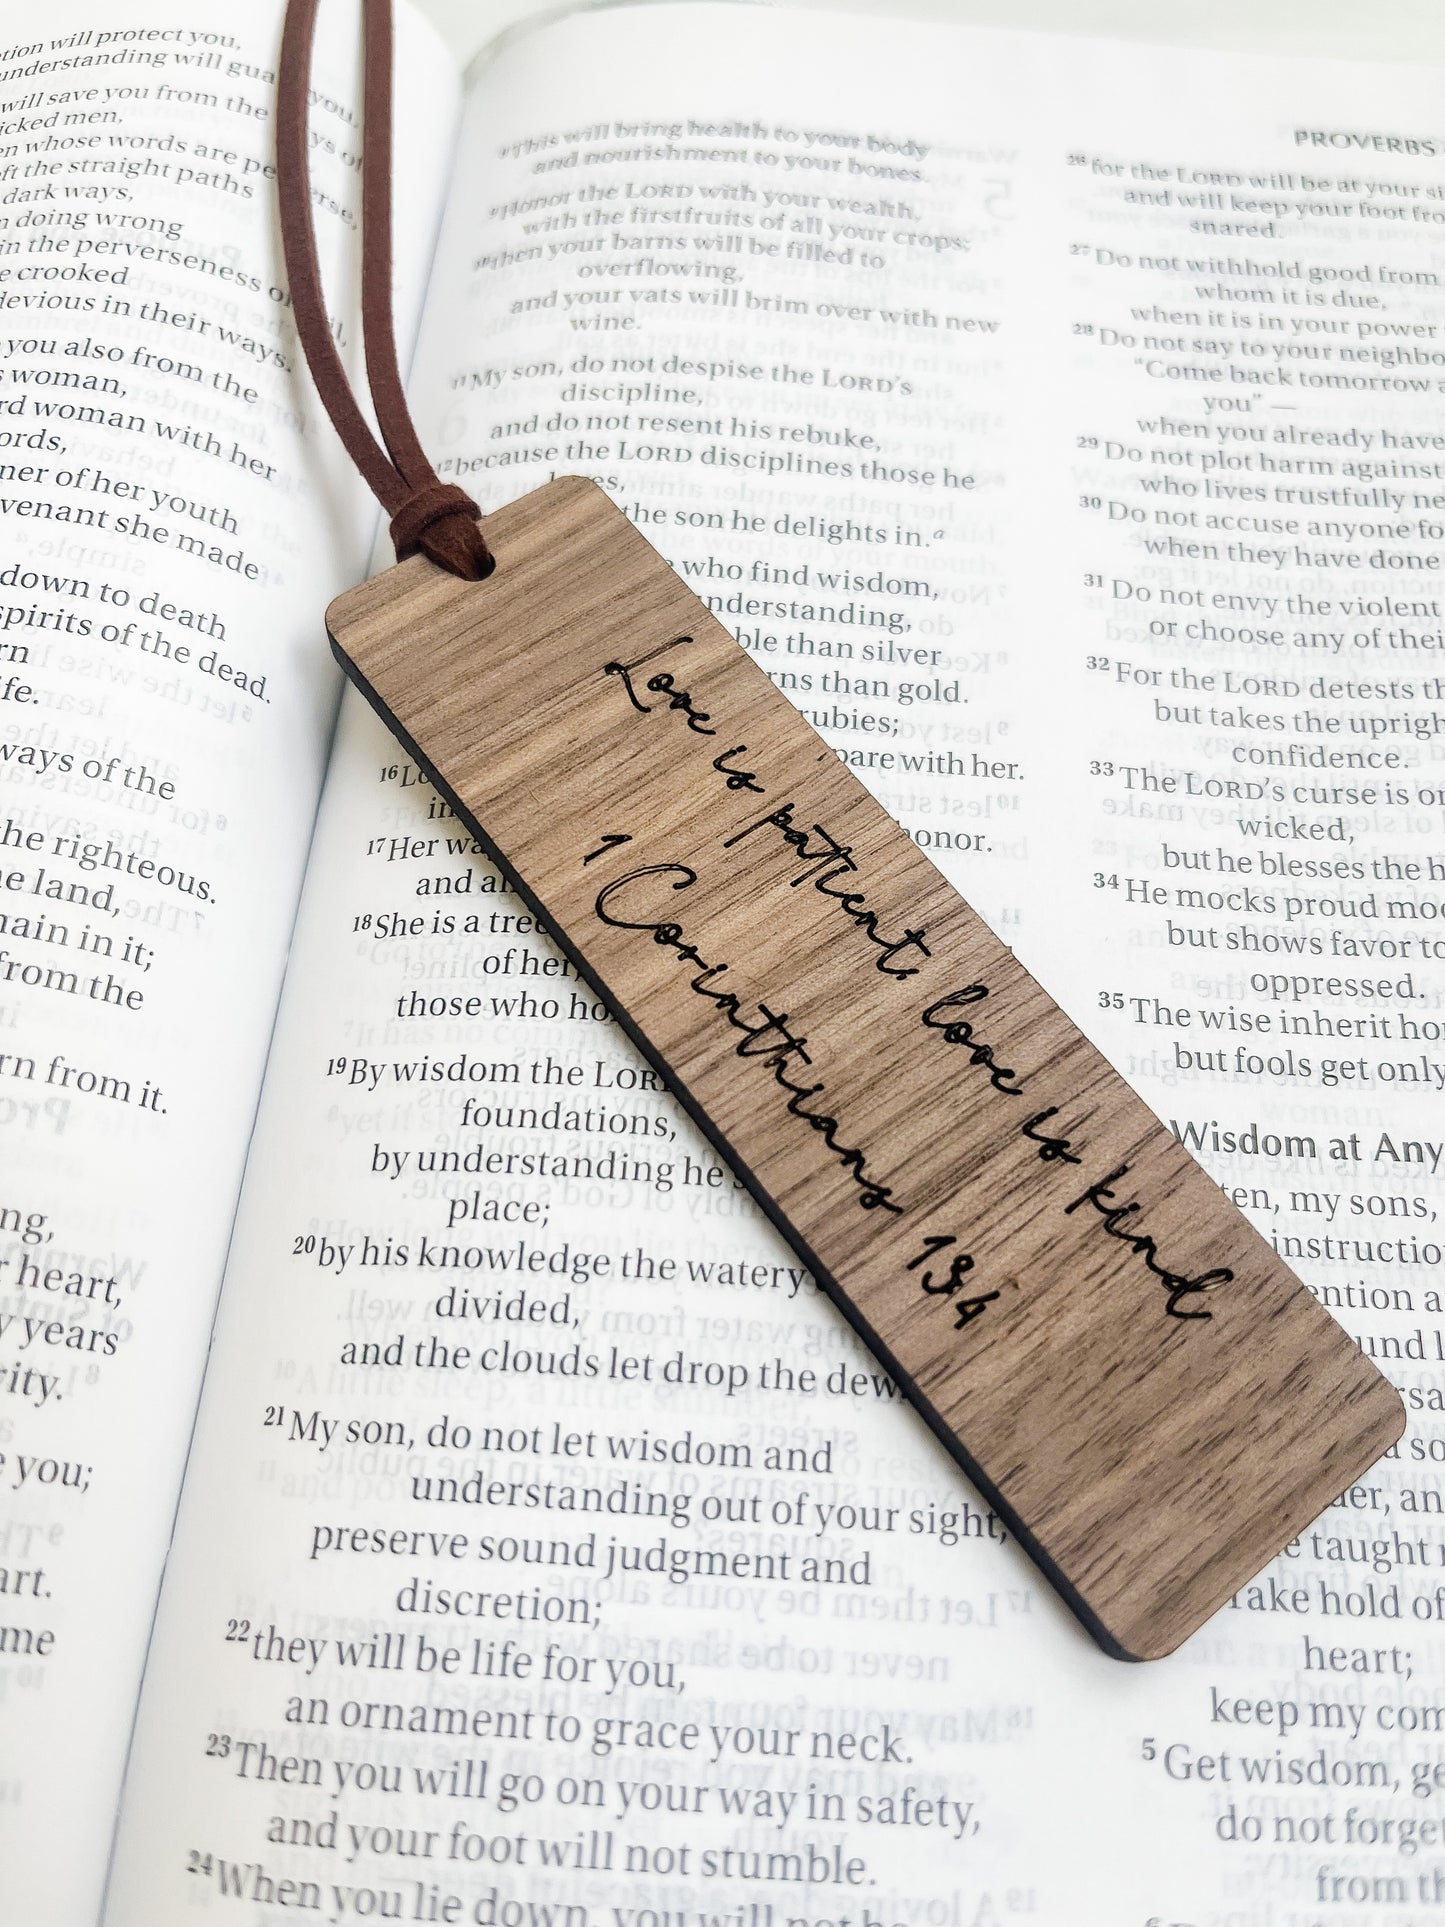 tion will protect you,
understanding will gua
will save you from the
icked men,
n whose words are pe
ft the straight paths
dark ways,
n doing wrong
in the perverseness o
e crooked
devious in their ways.
you also from the
s woman,
rd woman with her
ords,
ner of her youth
venant she made
down to death
spirits of the dead.
rn
ife.
ways of the
the righteous.
e land,
main in it;
from the
rn from it.
ng,
r heart,
y years
rity.
e you;
art.
me
8 This will bring health to your body
and nourishment to your bones.
9 Honor the LORD with your wealth,
with the firstfruits of all your crops;
10 then your barns will be filled to
overflowing,
and your vats will brim over with new
wine.
11 My son, do not despise the LORD's
discipline,
and do not resent his rebuke,
12 because the LORD disciplines those he
es,
the son he delights in.a
who find wisdom,
nderstanding,
ble than silver
rns than gold.
rubies;
pare with her.
16 Lo
in
honor.
17 Her wa
and al
18 She is a tree
of her;
those who ho
19 By wisdom the LOR
foundations,
by understanding he s
place;
20 by his knowledge the watery
divided,
and the clouds let drop the dew.
21 My son, do not let wisdom and
understanding out of your sight,
preserve sound judgment and
discretion;
22 they will be life for you,
an ornament to grace your neck.
23 Then you will go on your way in safety,
and your foot will not stumble.
24 When you lie down, you will not be
Love is patient, love is kind
1 Corinthians 13:4
PROVERBS
26 for the LORD will be at your si
and will keep your foot fro
snared.
27 Do not withhold good from
whom it is due,
when it is in your power
28 Do not say to your neighbo
"Come back tomorrow a
you" —
when you already have
29 Do not plot harm against
who lives trustfully ne
30 Do not accuse anyone fo
when they have done
31 Do not envy the violent
or choose any of thei
32 For the LORD detests th
but takes the uprigh
confidence.
33 The LORD's curse is on
wicked,
but he blesses the h
34 He mocks proud moc
but shows favor to
oppressed.
35 The wise inherit hon
but fools get only
Wisdom at Any
ten, my sons,
instructio
ention a
und l
rsa
so
her, an
e taught
Take hold of
heart;
keep my com
5 Get wisdom, ge
do not forget
from th